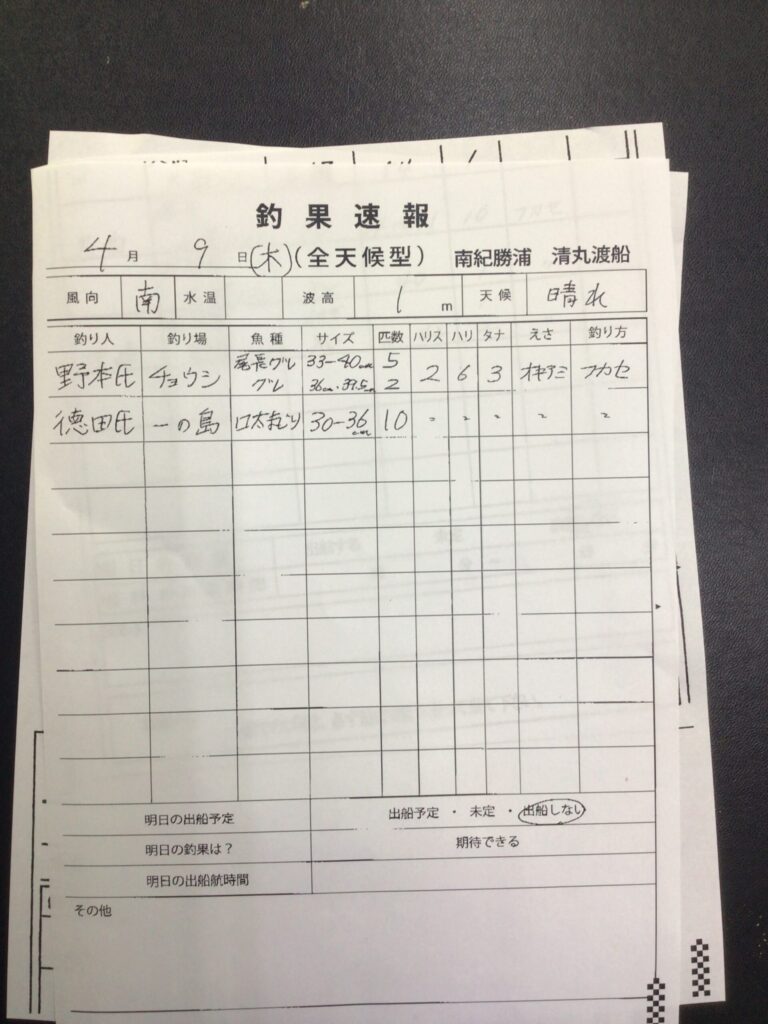 釣果速報
4月 9日(木)(全天候型) 南紀勝浦 清丸渡船
風向 南 水温 波高 1 m 天候 晴れ
釣り人 釣り場 魚種 サイズ 匹数 ハリス ハリ タナ えさ 釣り方
野本氏 チョウシ 尾長グレ 33-40cm 5 2 6 3 オキアミ フカセ
グレ 36cm・39.5cm 2
徳田氏 一の島 口太まじり 30-36cm 10 〃 〃 〃 〃 〃
明日の出船予定 出船予定 ・ 未定 ・ 出船しない
明日の釣果は? 期待できる
明日の出船航時間
その他